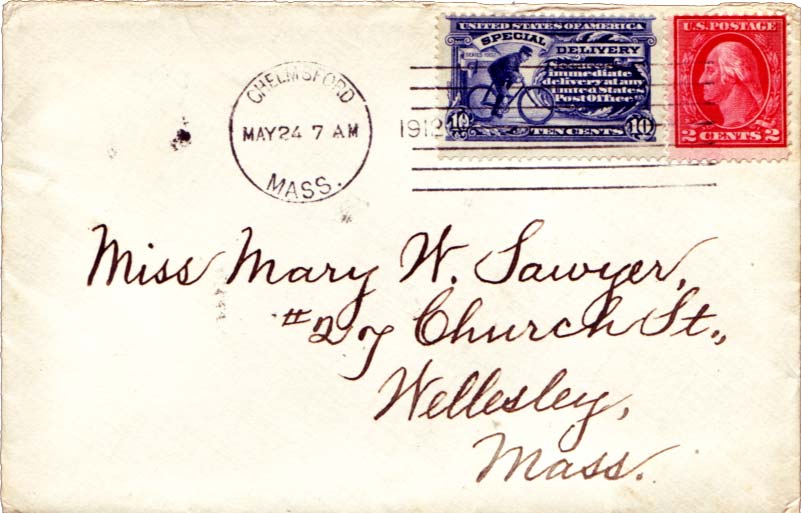 UNITED STATES OF AMERICA
SPECIAL DELIVERY
SERIES 1902
Secures
immediate
delivery at any
United States
Post Office
10 TEN CENTS 10
U.S. POSTAGE
2 CENTS 2
CHELMSFORD
MAY 24 7 AM
1912
MASS.
Miss Mary W. Sawyer,
#27 Church St.,
Wellesley,
Mass.